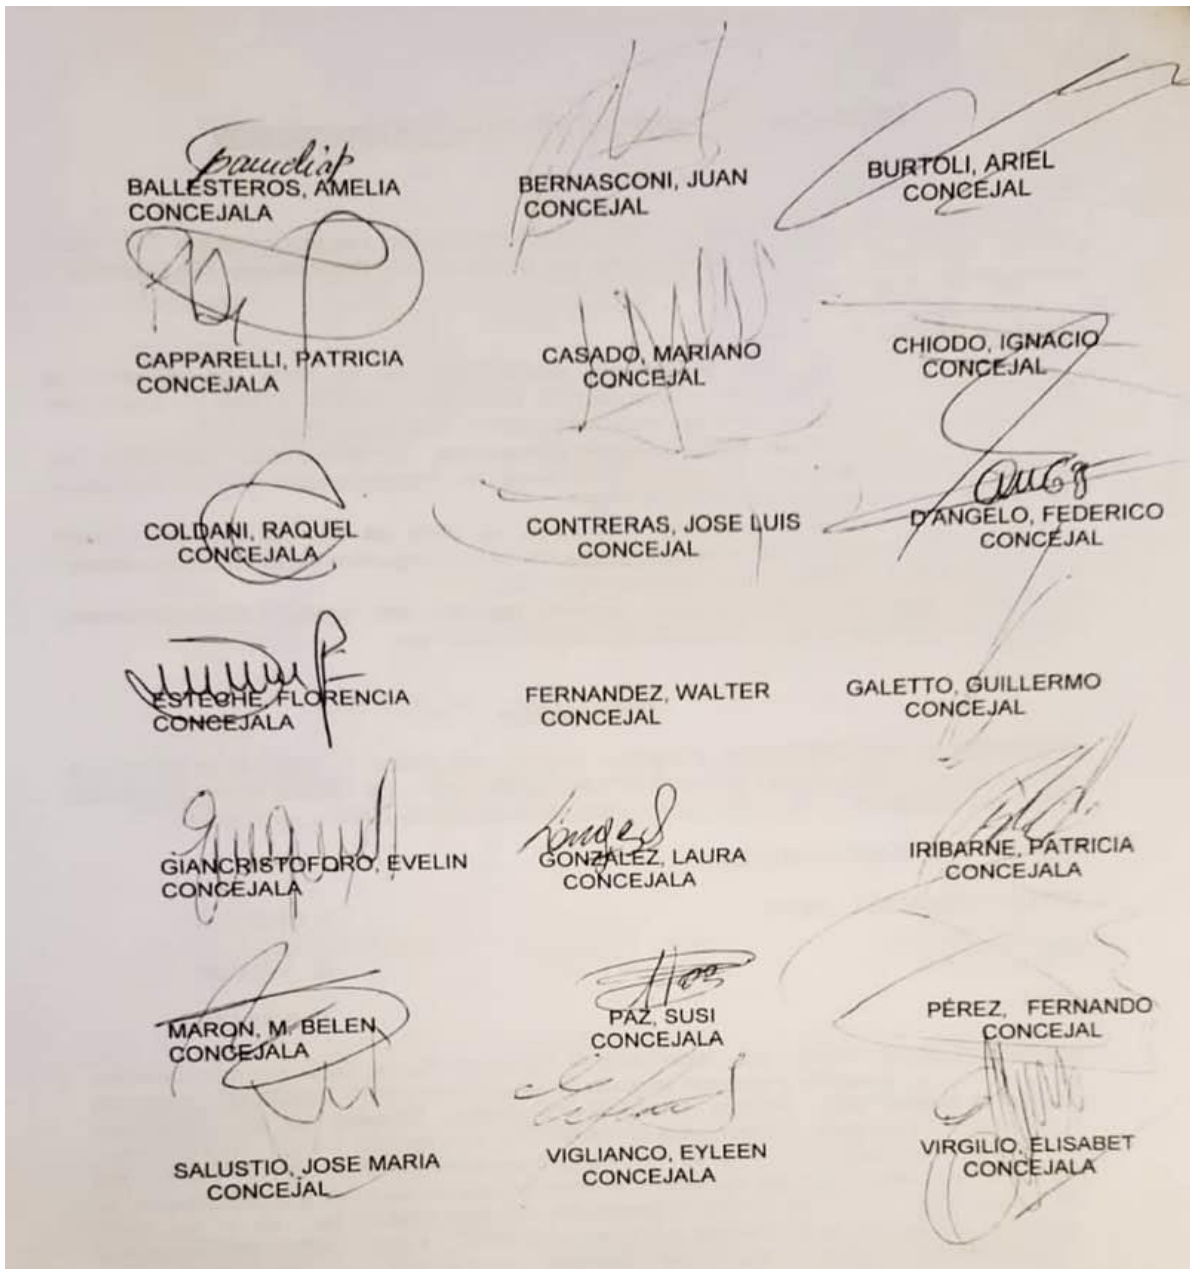 BALLESTEROS, AMELIA
CONCEJALA
BERNASCONI, JUAN
CONCEJAL
BURTOLI, ARIEL
CONCEJAL
CAPPARELLI, PATRICIA
CONCEJALA
CASADO, MARIANO
CONCEJAL
CHIODO, IGNACIO
CONCEJAL
COLDANI, RAQUEL
CONCEJALA
CONTRERAS, JOSE LUIS
CONCEJAL
D'ANGELO, FEDERICO
CONCEJAL
ESTECHE, FLORENCIA
CONCEJALA
FERNANDEZ, WALTER
CONCEJAL
GALETTO, GUILLERMO
CONCEJAL
GIANCRISTOFORO, EVELIN
CONCEJALA
GONZÁLEZ, LAURA
CONCEJALA
IRIBARNE, PATRICIA
CONCEJALA
MARON, M. BELEN
CONCEJALA
PAZ, SUSI
CONCEJALA
PÉREZ, FERNANDO
CONCEJAL
SALUSTIO, JOSE MARIA
CONCEJAL
VIGLIANCO, EYLEEN
CONCEJALA
VIRGILIO, ELISABET
CONCEJALA